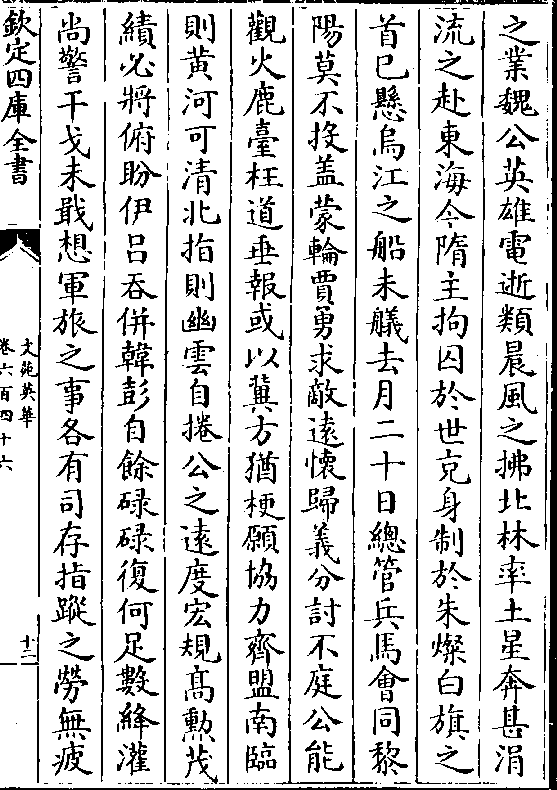 之業魏公英雄電逝類晨風之拂北林率土星奔甚涓
流之赴東海今隋主拘囚於世充身制於朱燦白旗之
首已懸烏江之船未艤去月二十日總管兵馬會同黎
陽莫不投蓋蒙輪賈勇求敵遠懷歸義分討不庭公能
觀火鹿臺枉道垂報或以冀方猶梗願協力齊盟南臨
則黄河可清北指則幽雲自捲公之遠度宏規髙勲茂
績必將俯盼伊吕吞併韓彭自餘碌碌復何足數絳灌
尚警干戈未戢想軍旅之事各有司存指蹤之勞無疲
欽定四庫全書
文苑英華
卷六百四十六
十二